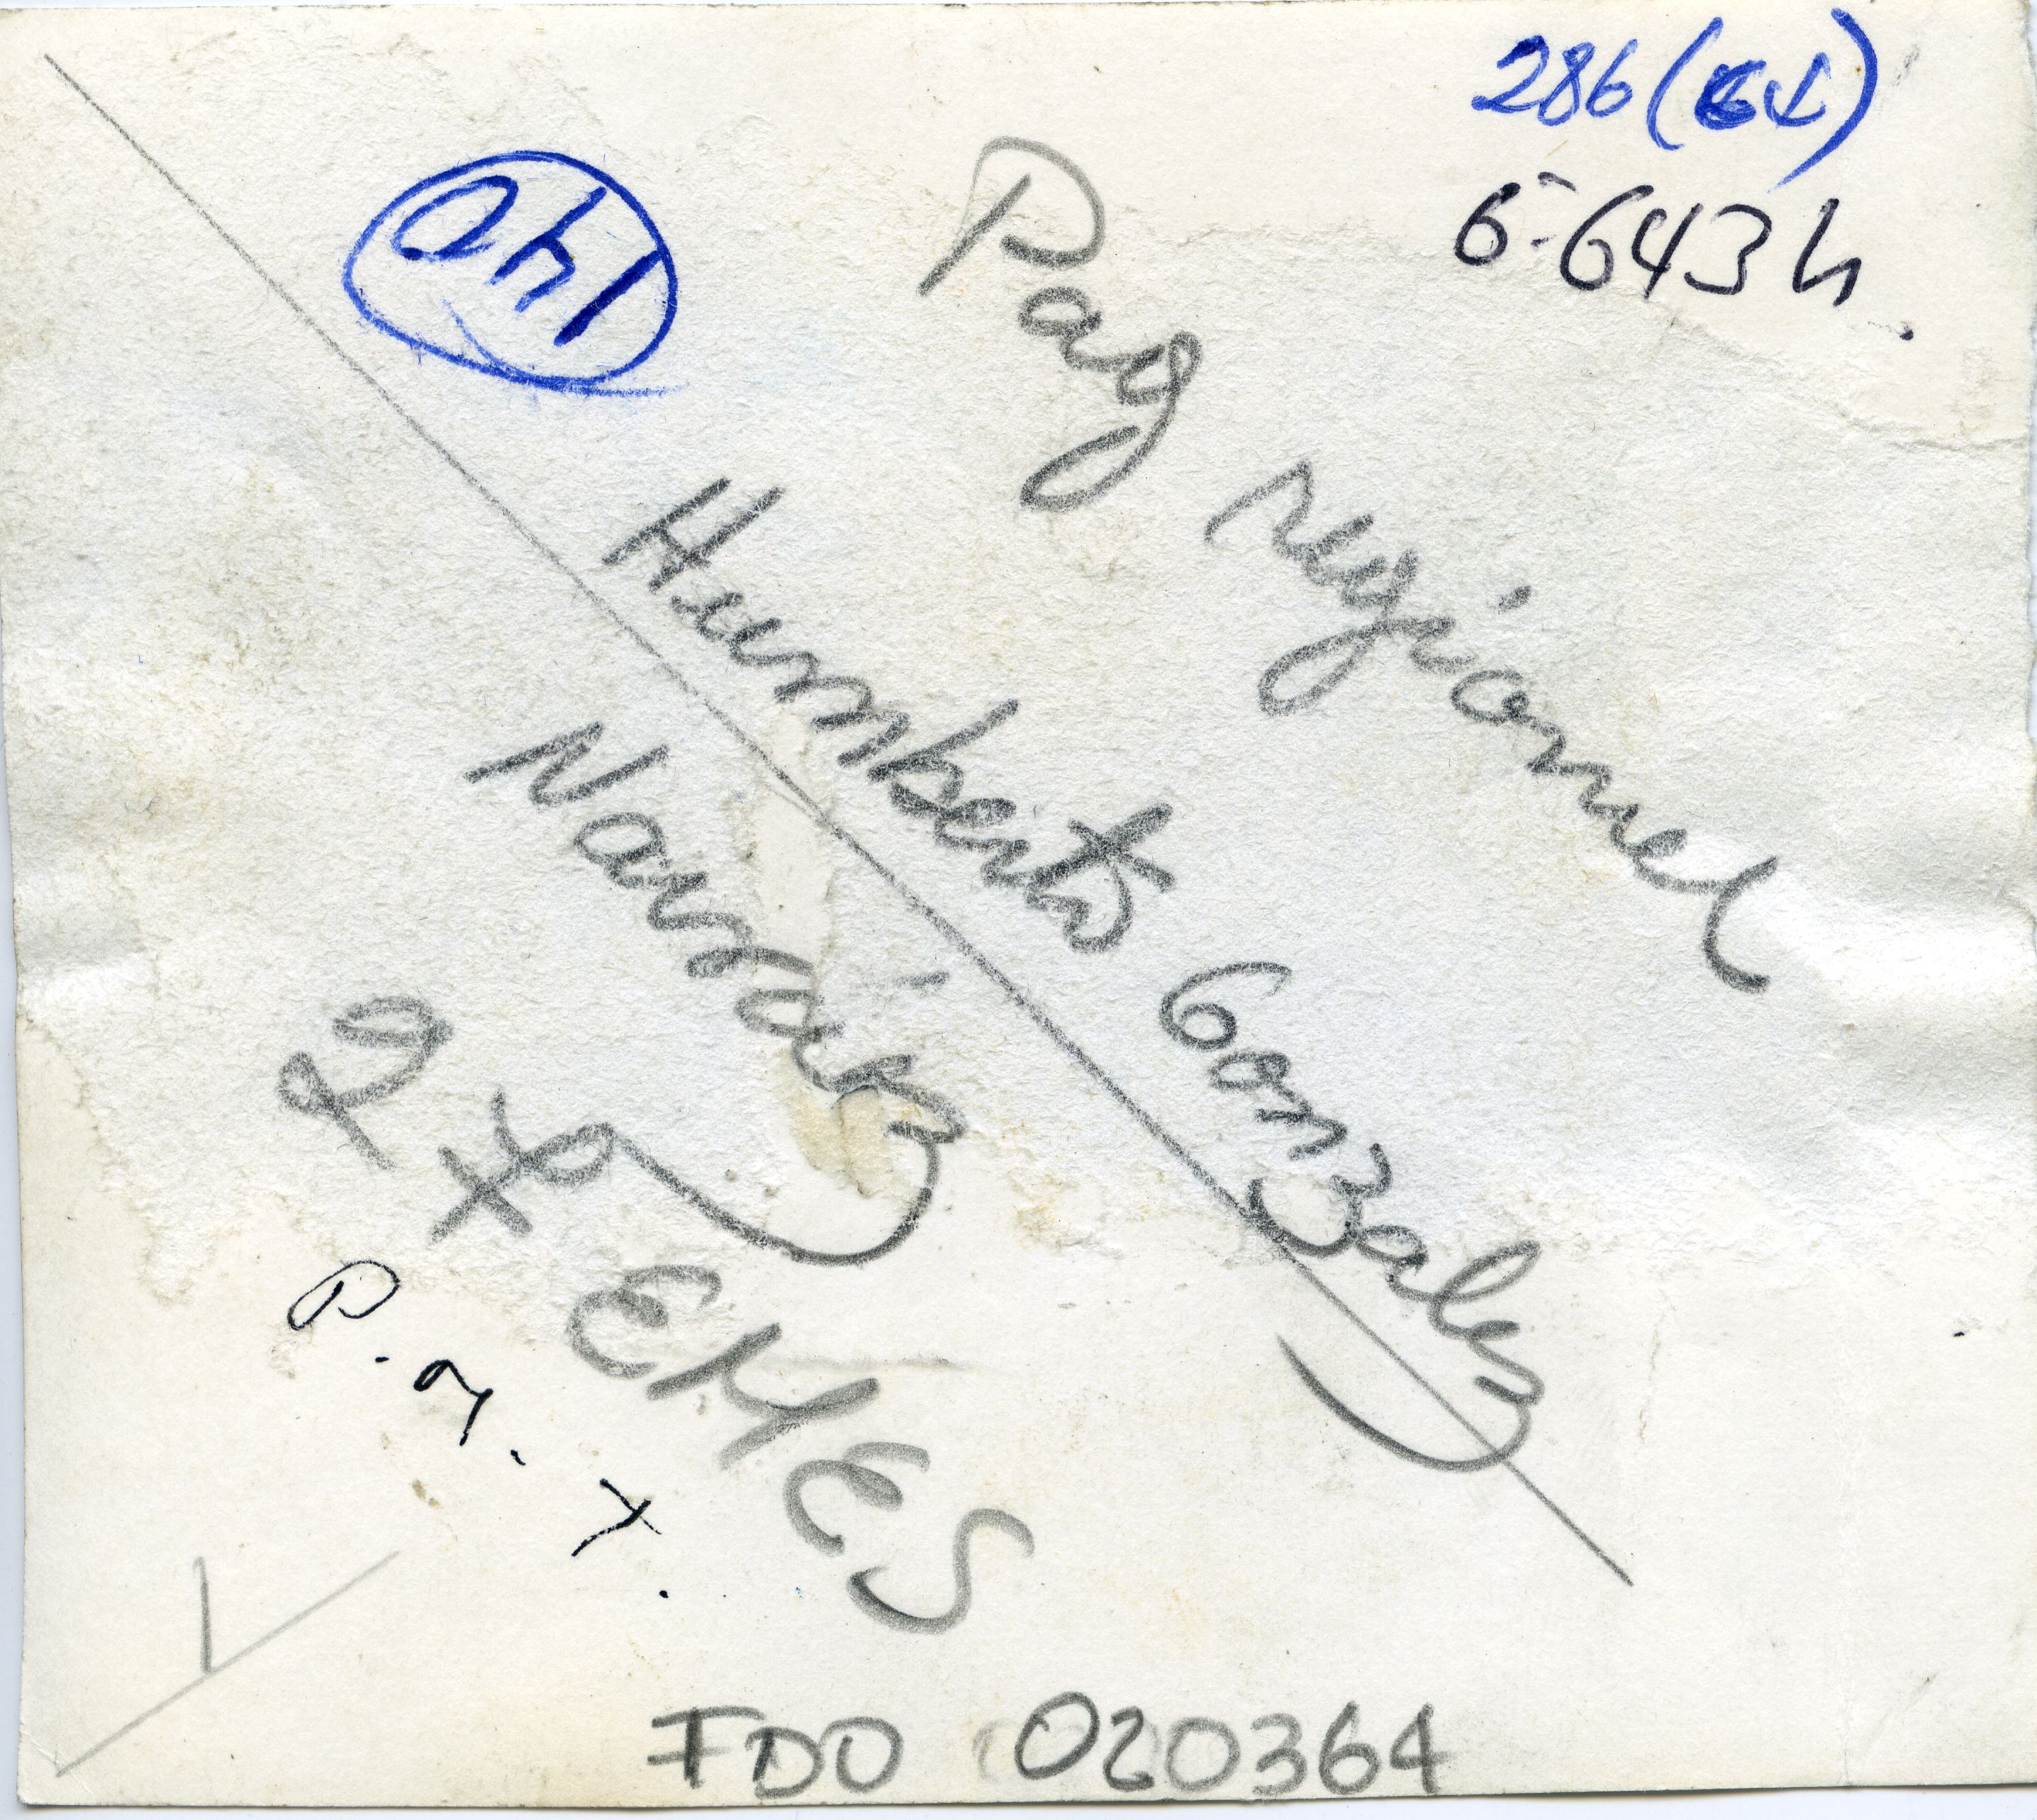 286 (64)
6-643 h.
140
Pag regional
Humberto Gonzalez
Narváez
EHES
P. M. X.
FDO 020364